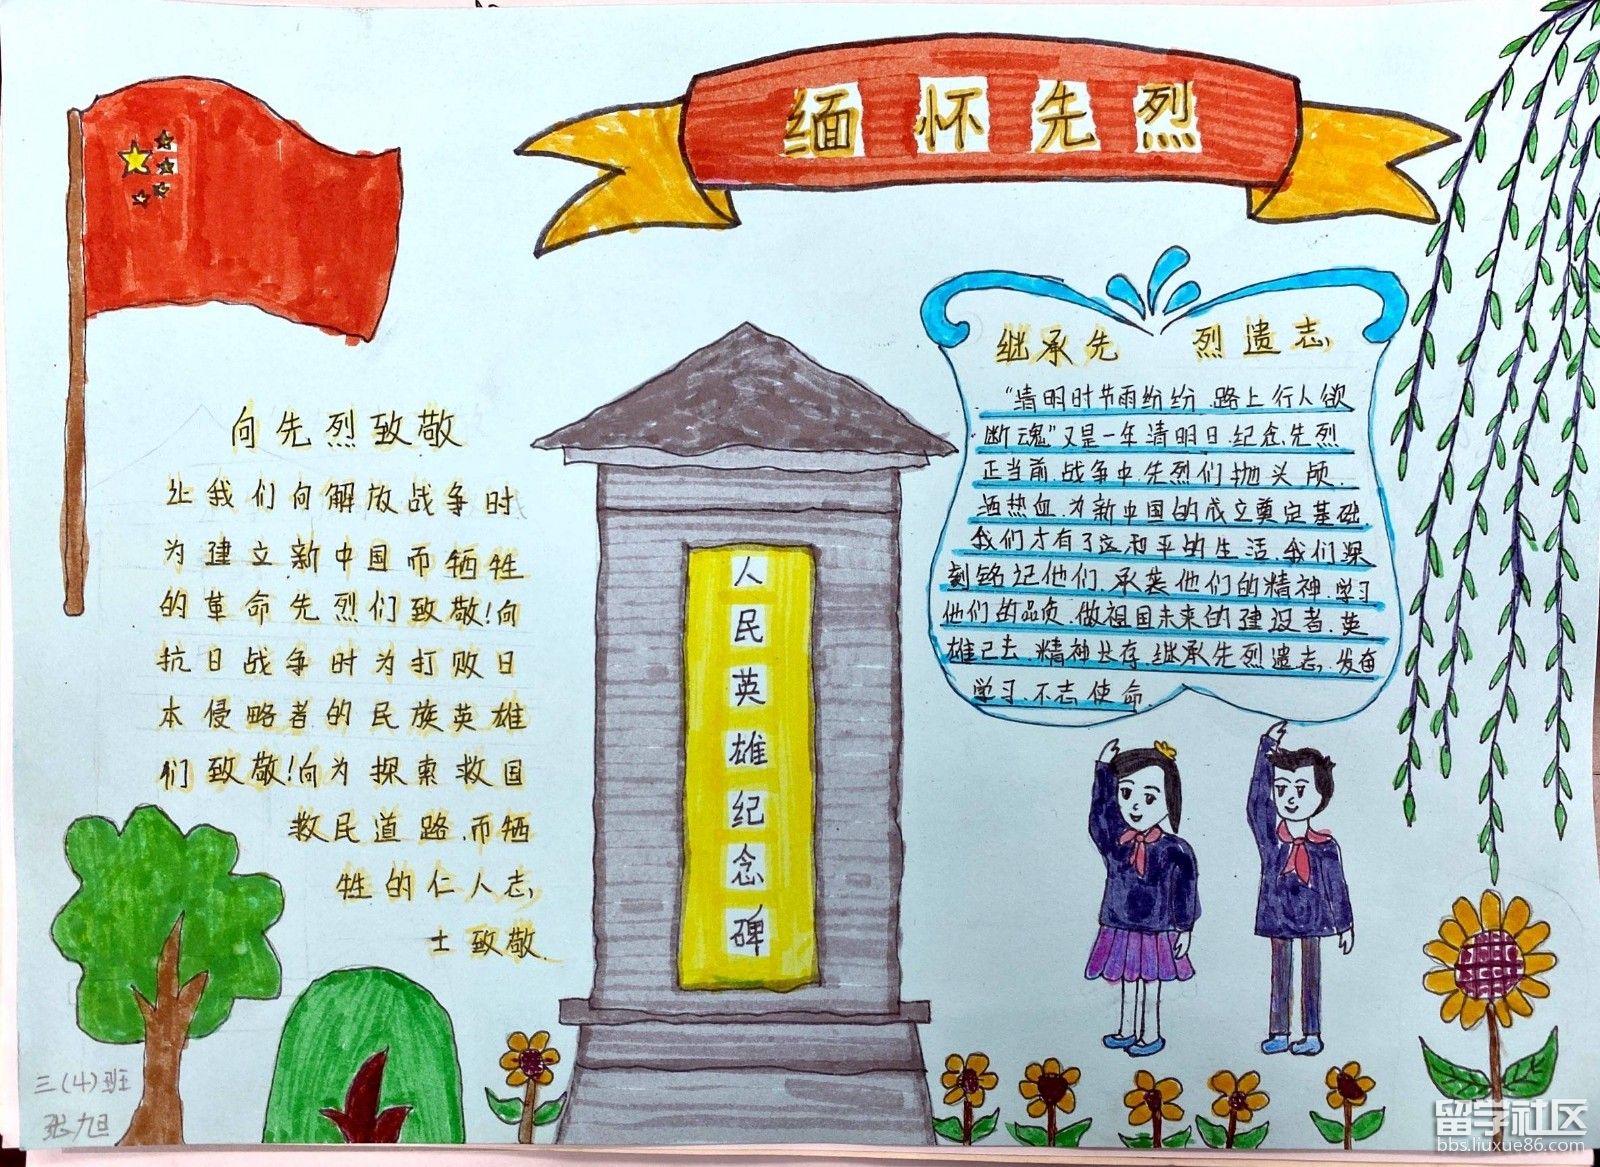 缅怀先烈
向先烈致敬
让我们向解放战争时
为建立新中国而牺牲
的革命先烈们致敬!向
抗日战争时为打败日
本侵略者的民族英雄
们致敬!向为探索救国
救民道路.而牺
牲的仁人志
士致敬.
人民英雄纪念碑
继承先烈遗志
“清明时节雨纷纷.路上行人欲
断魂”又是一年清明日.纪念先烈
正当前.战争中先烈们抛头颅.
洒热血.为新中国的成立奠定基础
我们才有了这和平的生活.我们深
刻铭记他们.承装他们的精神.学习
他们的品质.做祖国未来的建设者.英
雄已去.精神长存.继承先烈遗志.发奋
学习.不志使命.
三(4)班
张旭
留学社区
bbs.liuxue86.com